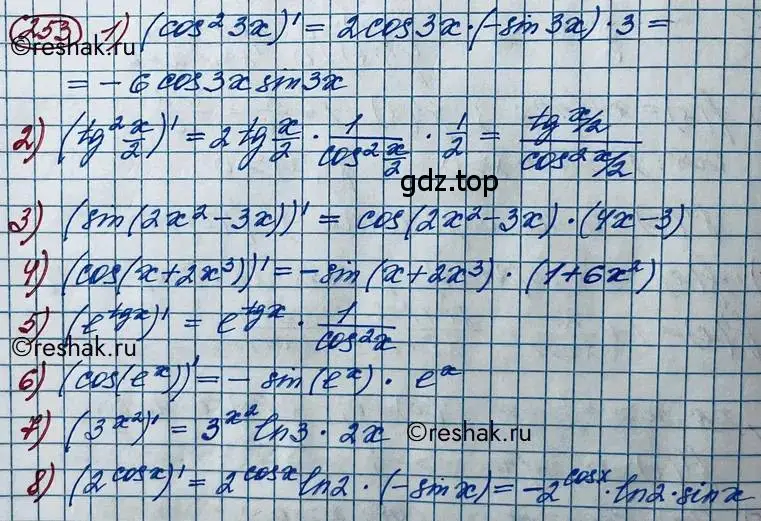 253 1) (cos² 3x)' = 2cos3x·(-sin3x)·3 =
= -6cos3x sin3x
2) (tg² x/2)' = 2 tg x/2 · 1/(cos² x/2) · 1/2 = (tg x/2)/(cos² x/2)
gdz.top
3) (sin(2x²-3x))' = cos(2x²-3x)·(4x-3)
4) (cos(x+2x³))' = -sin(x+2x³)·(1+6x²)
5) (e^(tgx))' = e^(tgx) · 1/(cos²x)
©reshak.ru
6) (cos(eˣ))' = -sin(eˣ)·eˣ
7) (3^(x²))' = 3^(x²) ln3·2x ©reshak.ru
8) (2^(cosx))' = 2^(cosx) ln2·(-sinx) = -2^(cosx)·ln2·sinx